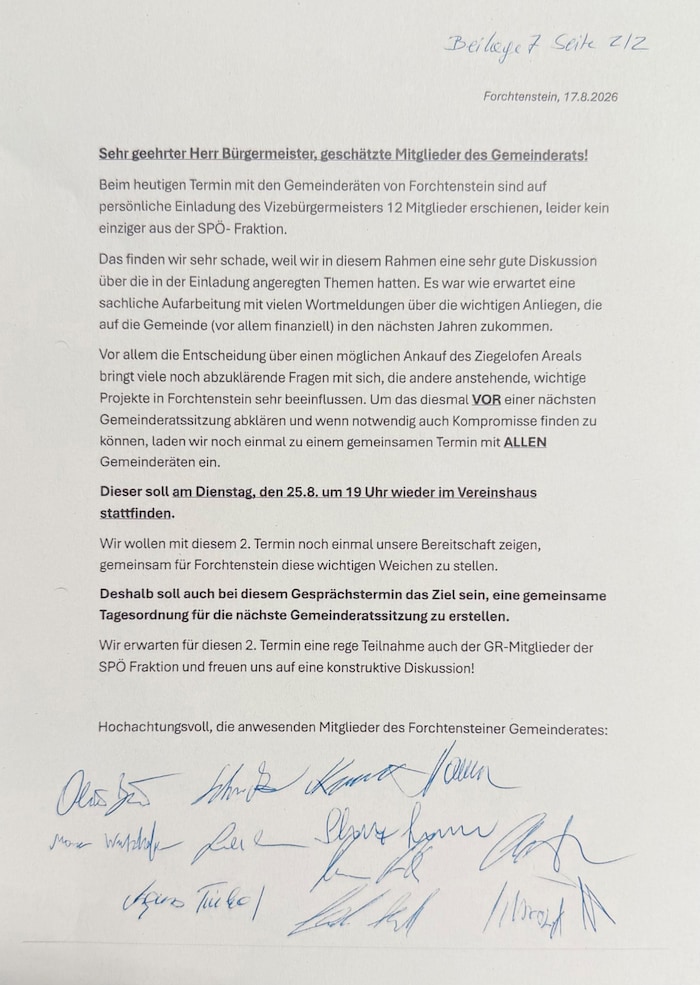 Beilage 7 Seite 2/2
Forchtenstein, 17.8.2026
Sehr geehrter Herr Bürgermeister, geschätzte Mitglieder des Gemeinderats!
Beim heutigen Termin mit den Gemeinderäten von Forchtenstein sind auf
persönliche Einladung des Vizebürgermeisters 12 Mitglieder erschienen, leider kein
einziger aus der SPÖ- Fraktion.
Das finden wir sehr schade, weil wir in diesem Rahmen eine sehr gute Diskussion
über die in der Einladung angeregten Themen hatten. Es war wie erwartet eine
sachliche Aufarbeitung mit vielen Wortmeldungen über die wichtigen Anliegen, die
auf die Gemeinde (vor allem finanziell) in den nächsten Jahren zukommen.
Vor allem die Entscheidung über einen möglichen Ankauf des Ziegelofen Areals
bringt viele noch abzuklärende Fragen mit sich, die andere anstehende, wichtige
Projekte in Forchtenstein sehr beeinflussen. Um das diesmal VOR einer nächsten
Gemeinderatssitzung abklären und wenn notwendig auch Kompromisse finden zu
können, laden wir noch einmal zu einem gemeinsamen Termin mit ALLEN
Gemeinderäten ein.
Dieser soll am Dienstag, den 25.8. um 19 Uhr wieder im Vereinshaus
stattfinden.
Wir wollen mit diesem 2. Termin noch einmal unsere Bereitschaft zeigen,
gemeinsam für Forchtenstein diese wichtigen Weichen zu stellen.
Deshalb soll auch bei diesem Gesprächstermin das Ziel sein, eine gemeinsame
Tagesordnung für die nächste Gemeinderatssitzung zu erstellen.
Wir erwarten für diesen 2. Termin eine rege Teilnahme auch der GR-Mitglieder der
SPÖ Fraktion und freuen uns auf eine konstruktive Diskussion!
Hochachtungsvoll, die anwesenden Mitglieder des Forchtensteiner Gemeinderates: